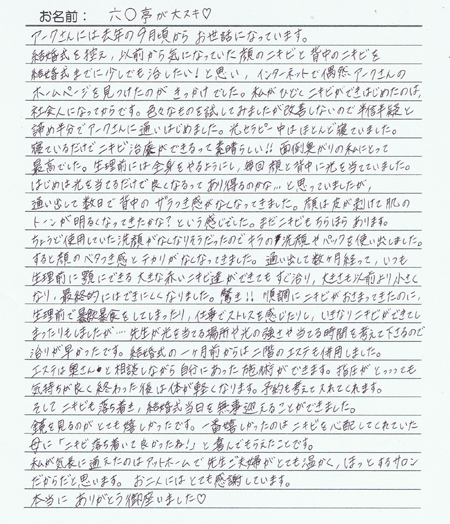 お名前： 六〇亭が大スキ♡
アークさんには去年の9月頃からお世話になっています。
結婚式を控え、以前から気になっていた顔のニキビと背中のニキビを
結婚式までに少しでも治したい！と思い、インターネットで偶然アークさんの
ホームページを見つけたのがきっかけでした。私がひどくニキビができはじめたのは、
社会人になってからです。色々なものを試してみましたが改善しないので半信半疑で
諦め半分でアークさんに通いはじめました。光セラピー中はほとんど寝ていました。
寝ているだけでニキビ治療ができるって素晴らしい!! 面倒臭がりの私にとって
最高でした。生理前には全身をやるようにし、毎回顔と背中に光を当てていました。
はじめは光を当てるだけで良くなるってあり得るのかな…と思っていましたが、
通い出して数日で背中のザラつき感がなくなってきました。顔は皮が剥けて肌の
トーンが明るくなってきたかな？という感じでした。まだニキビもちらほらあります。
ちょうど使用していた洗顔がなくなりそうだったのでキラの洗顔やパックを使い出しました。
すると顔のベタつき感とテカリがなくなってきました。通い出して数ヶ月経って、いつも
生理前に顎にできる大きな赤いニキビ達ができてもすぐ治り、大きさも以前より小さく
なり、最終的にはできにくくなりました。驚き!! 順調にニキビがおさまってきたのに、
生理前で暴飲暴食をしてしまったり、仕事でストレスを感じたりし、いきなりニキビができてし
まったりもしましたが…先生が光を当てる場所や光の強さや当てる時間を考えて下さるので
治りが早かったです。結婚式の一ヶ月前からは二階のエステも併用しました。
エステは奥さんと相談しながら自分にあった施術ができます。指圧がとっっても
気持ちが良く終わった後は体が軽くなります。予約も考えて入れてくれます。
そしてニキビも落ち着き、結婚式当日を無事迎えることができました。
鏡を見るのがとても嬉しかったです。一番嬉しかったのはニキビを心配してくれていた
母に「ニキビ落ちついて良かったね！」と喜んでもらえたことです。
私が気長に通えたのはアットホームで先生ご夫婦がとても温かく、ほっとするサロン
だからだと思います。お二人にはとても感謝しています。
本当にありがとう御座いました♡